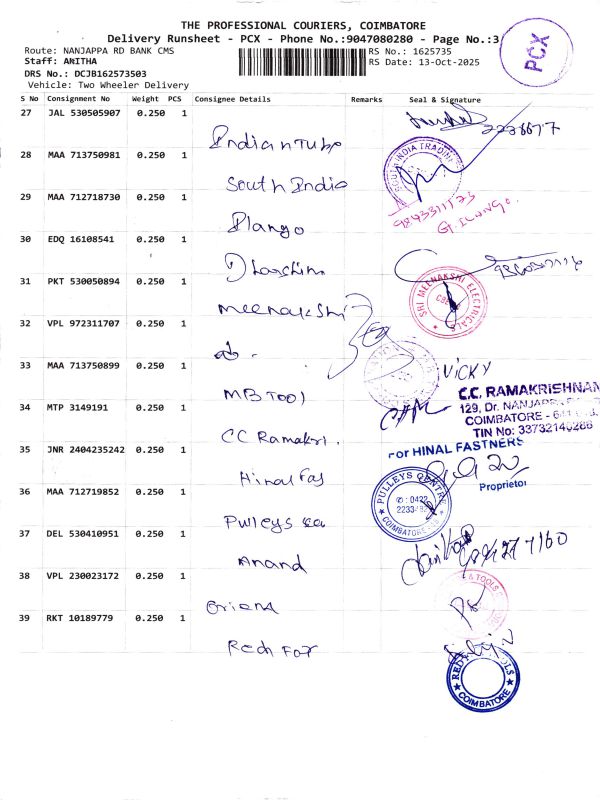 THE PROFESSIONAL COURIERS, COIMBATORE
Delivery Runsheet - PCX - Phone No.:9047080280 - Page No.:3
PCX
Route: NANJAPPA RD BANK CMS
RS No.: 1625735
Staff: ANITHA
RS Date: 13-Oct-2025
DRS No.: DCJB162573503
Vehicle: Two Wheeler Delivery
S No Consignment No Weight PCS Consignee Details Remarks Seal & Signature
27 JAL 530505907 0.250 1
Indian Tube
28 MAA 713750981 0.250 1
South India
SOUTH INDIA TRADING
29 MAA 712718730 0.250 1
9843311173
Plango
G. ILANGO.
30 EDQ 16108541 0.250 1
Dharshini
31 PKT 530050894 0.250 1
SRI MEENAKSHI ELECTRICALS
Meenakshi
32 VPL 972311707 0.250 1
33 MAA 713750899 0.250 1
VICKY
MB Tool
C.C. RAMAKRISHNAN
34 MTP 3149191 0.250 1
129, Dr. NANJAPPA
COIMBATORE
TIN No: 33732140286
CC Ramakri.
35 JNR 2404235242 0.250 1
For HINAL FASTNERS
Hinal Fas
Proprietor
36 MAA 712719852 0.250 1
PULLEYS CENTRE
0422
COIMBATORE
Pulleys
37 DEL 530410951 0.250 1
Anand
38 VPL 230023172 0.250 1
& TOOLS
Orient
39 RKT 10189779 0.250 1
Red For
RED
COIMBATORE